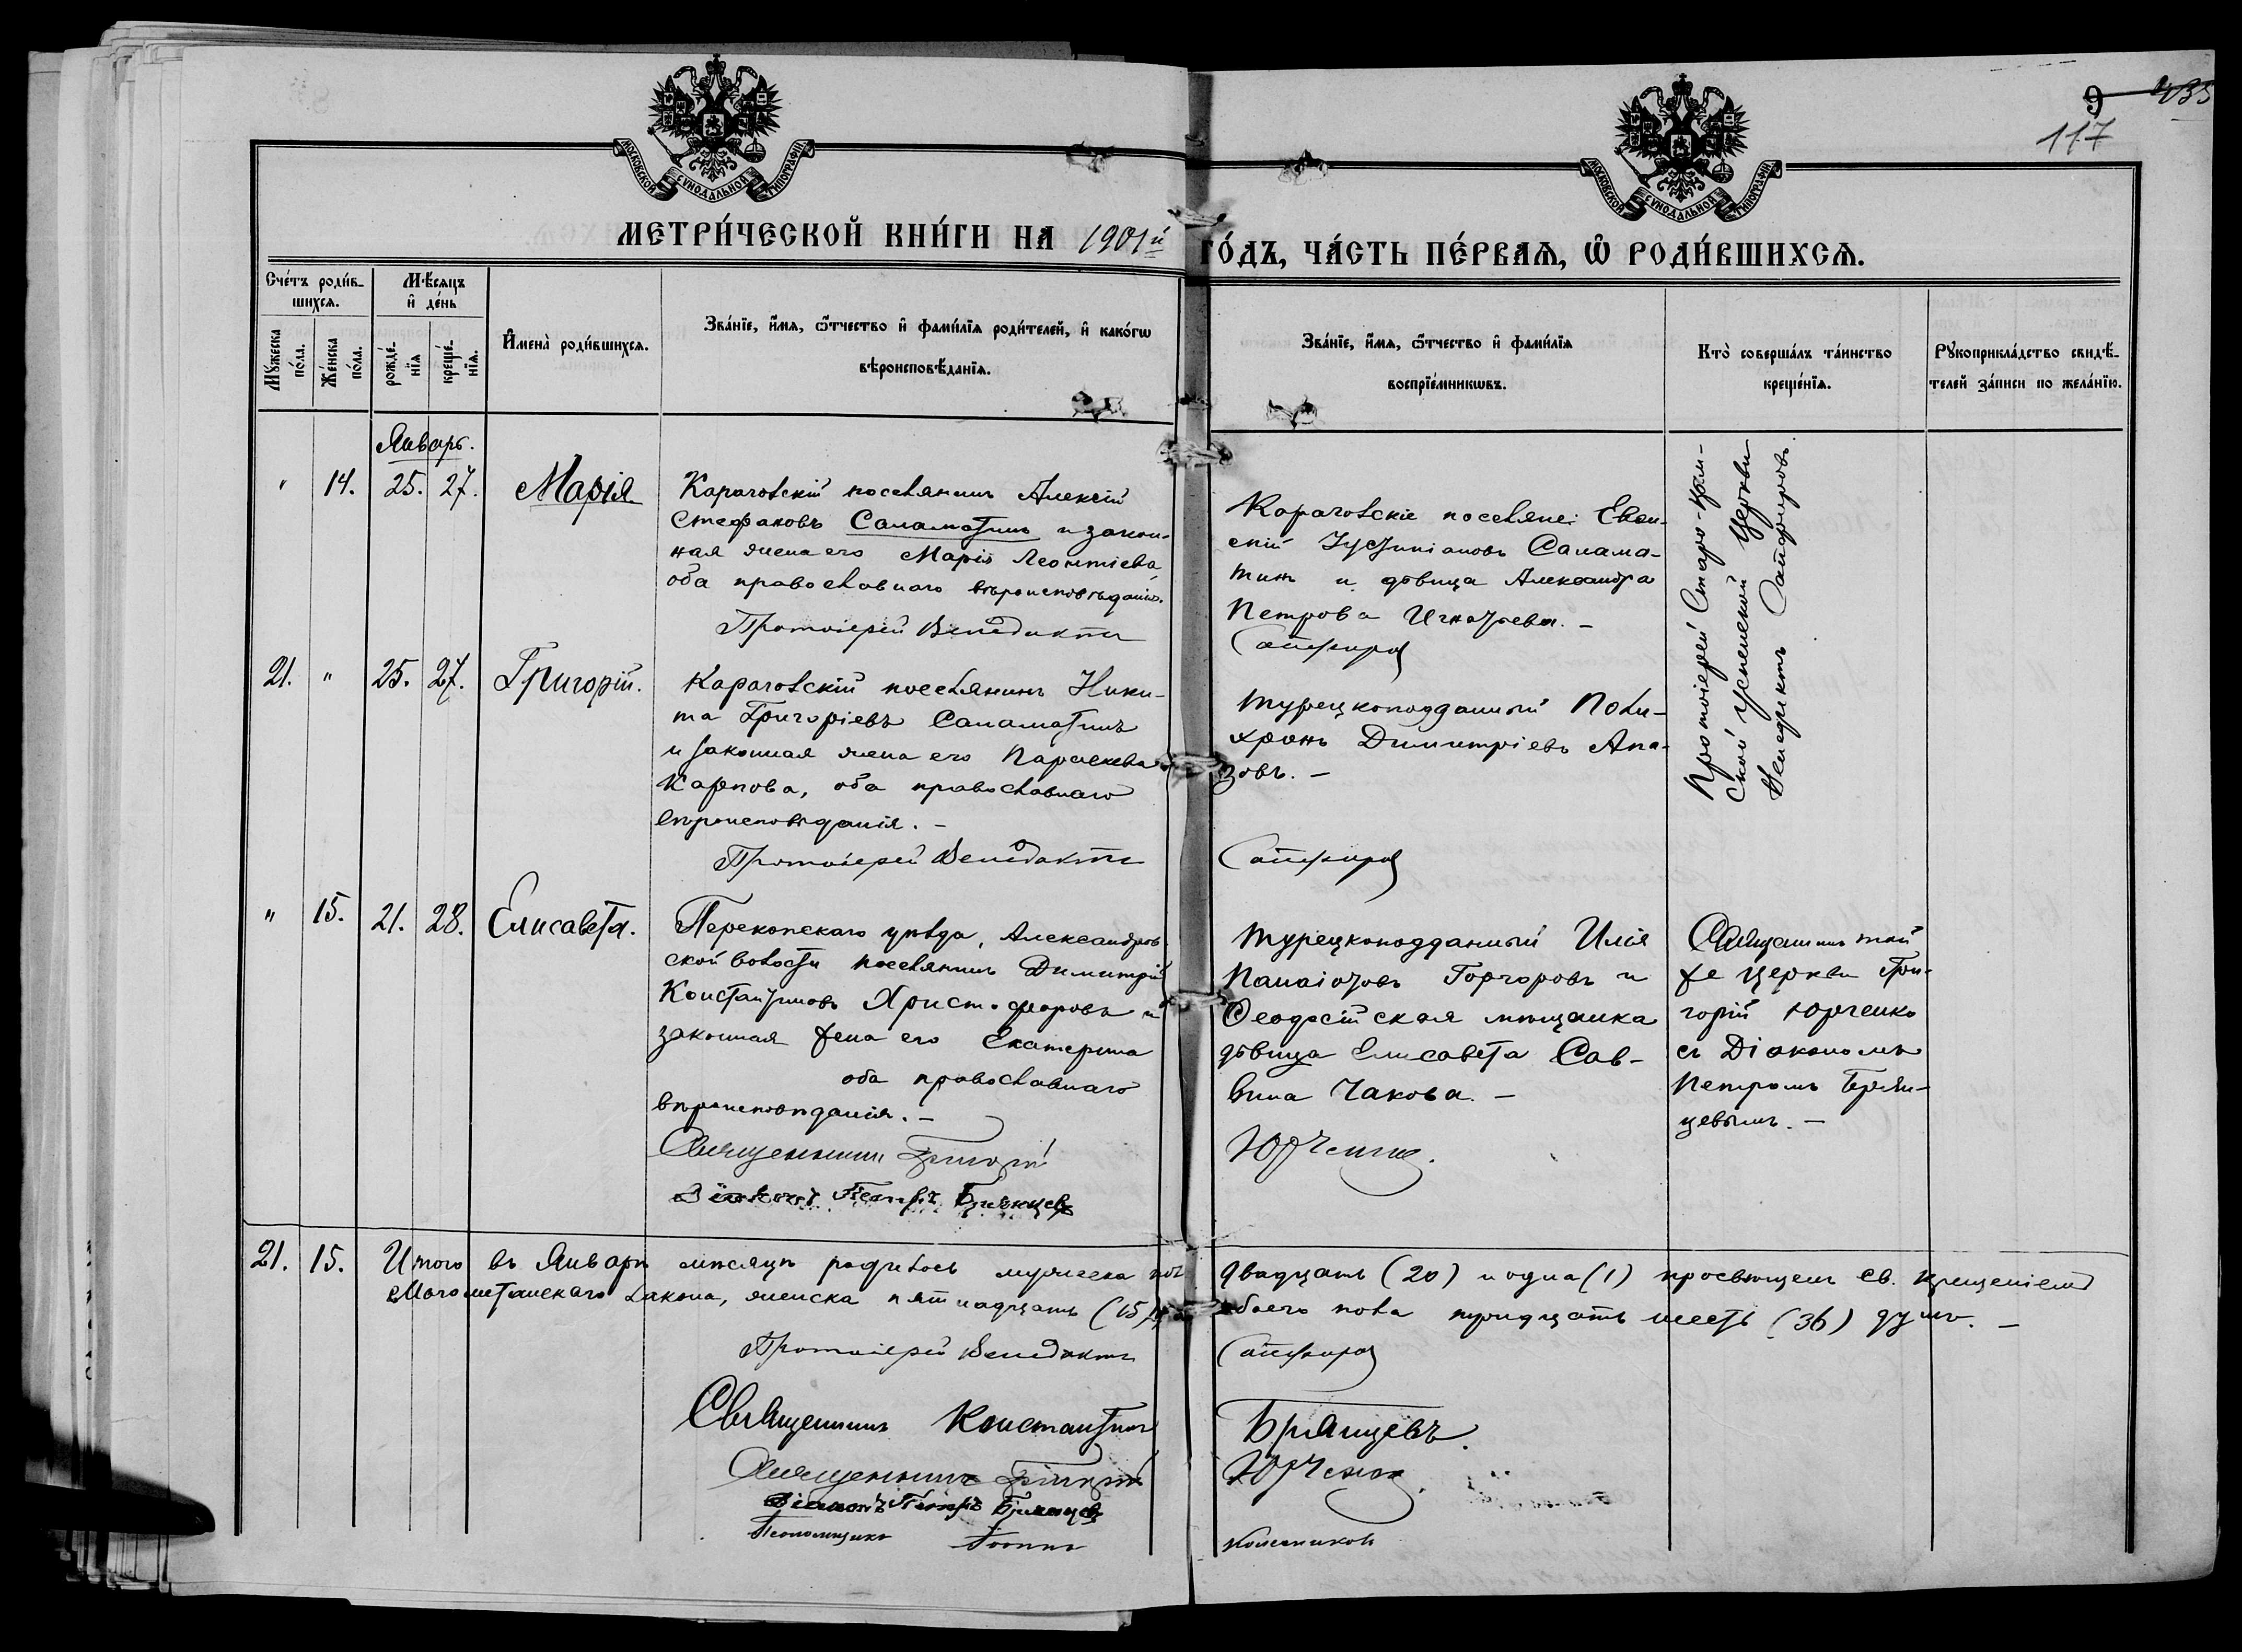 9 435
117
МОСКОВСКОЙ СУНОДАЛЬНОЙ ТИПОГРАФІИ
МОСКОВСКОЙ СУНОДАЛЬНОЙ ТИПОГРАФІИ
МЕТРИ́ЧЕСКОЙ КНИ́ГИ НА 1901й ГО́ДЪ, ЧА́СТЬ ПЕ́РВАѦ, Ѽ РОДИ́ВШИХСѦ.
Сче́тъ роди́в-
шихсѧ.
Мꙋ́жеска по́ла.
Же́нска по́ла.
Мѣ́сяцъ
и҆ де́нь
рожде́-
нїѧ
креще́-
нїѧ.
И҆мена̀ роди́вшихсѧ.
Зва́нїе, и҆́мѧ, ѻ҆́тчество и҆ фами́лїѧ роди́телей, и҆ како́гѡ
вѣроисповѣ́данїѧ.
Зва́нїе, и҆́мѧ, ѻ҆́тчество и҆ фами́лїѧ
воспрїе́мникѡвъ.
Кто̀ соверша́лъ та́инство
креще́нїѧ.
Рꙋкоприкла́дство свидѣ́-
телей за́писи по жела́нїю.
Январь.
" 14. 25. 27. Марія
Карагозскій поселянинъ Алексій
Стефановъ Саламатинъ и закон-
ная жена его Марія Леонтіева,
оба православнаго вѣроисповѣданія.
Протоіерей Венедиктъ
Карагозскіе поселяне: Евсе-
вій Іустиніановъ Салама-
тинъ и дѣвица Александра
Петрова Игнатьева. –
Сапфиров
Протоіерей Старо-Крым-
ской Успенской Церкви
Венедиктъ Сапфировъ.
21. " 25. 27. Григорій.
Карагозскій поселянинъ Ники-
та Григоріевъ Саламатинъ
и законная жена его Параскева
Карпова, оба православнаго
вѣроисповѣданія. –
Протоіерей Венедиктъ
Турецкоподданный Поли-
хронъ Димитріевъ Апа-
зовъ. –
Сапфиров
" 15. 21. 28. Елисавета.
Перекопскаго уѣзда, Александров-
ской волости поселянинъ Димитрій
Константиновъ Христофоровъ и
законная жена его Екатерина
оба православнаго
вѣроисповѣданія. –
Священникъ Григорій
Діаконъ Петръ Брянцев
Турецкоподданный Илія
Панаіотовъ Горгоровъ и
Ѳеодосійская мѣщанка
дѣвица Елисавета Сав-
вина Чакова. –
Юрченко.
Священникъ той
же Церкви Гри-
горій Юрченко
съ Діакономъ
Петромъ Брян-
цевымъ. –
21. 15. Итого въ Январѣ мѣсяцѣ родилось мужеска пол двадцать (20) и одна (1) просвѣщенъ св. крещеніемъ
Магометанскаго Закона, женска пятнадцать (15), обоего пола тридцать шесть (36) душъ. –
Протоіерей Венедиктъ Сапфиров
Священникъ Константинъ Брянцевъ.
Священникъ Григорій Юрченко.
Діаконъ Петръ Брянцев
Псаломщикъ Колесников